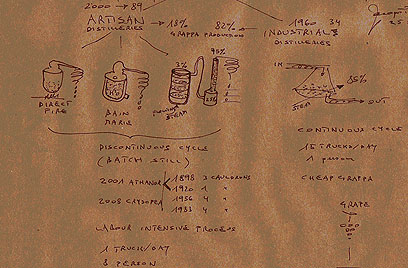 2000 → 89
ARTISAN
DISTILLERIES
18%
82%
GRAPPA PRODUCTION
1960 34
INDUSTRIAL
DISTILLERIES
25
DIRECT
FIRE
BAIN
MARIE
3%
STEAM
95%
IN
STEAM
85%
OUT
DISCONTINUOUS CYCLE
(BATCH STILL)
2001 ATHANOR
2008 CRYSOPEA
1898 3 CAULDRONS
1920 1 "
1956 4 "
1933 4 "
LABOUR INTENSIVE PROCESS
1 TRUCK/DAY
3 PERSON
CONTINUOUS CYCLE
15 TRUCKS/DAY
1 person
CHEAP GRAPPA
GRAPE